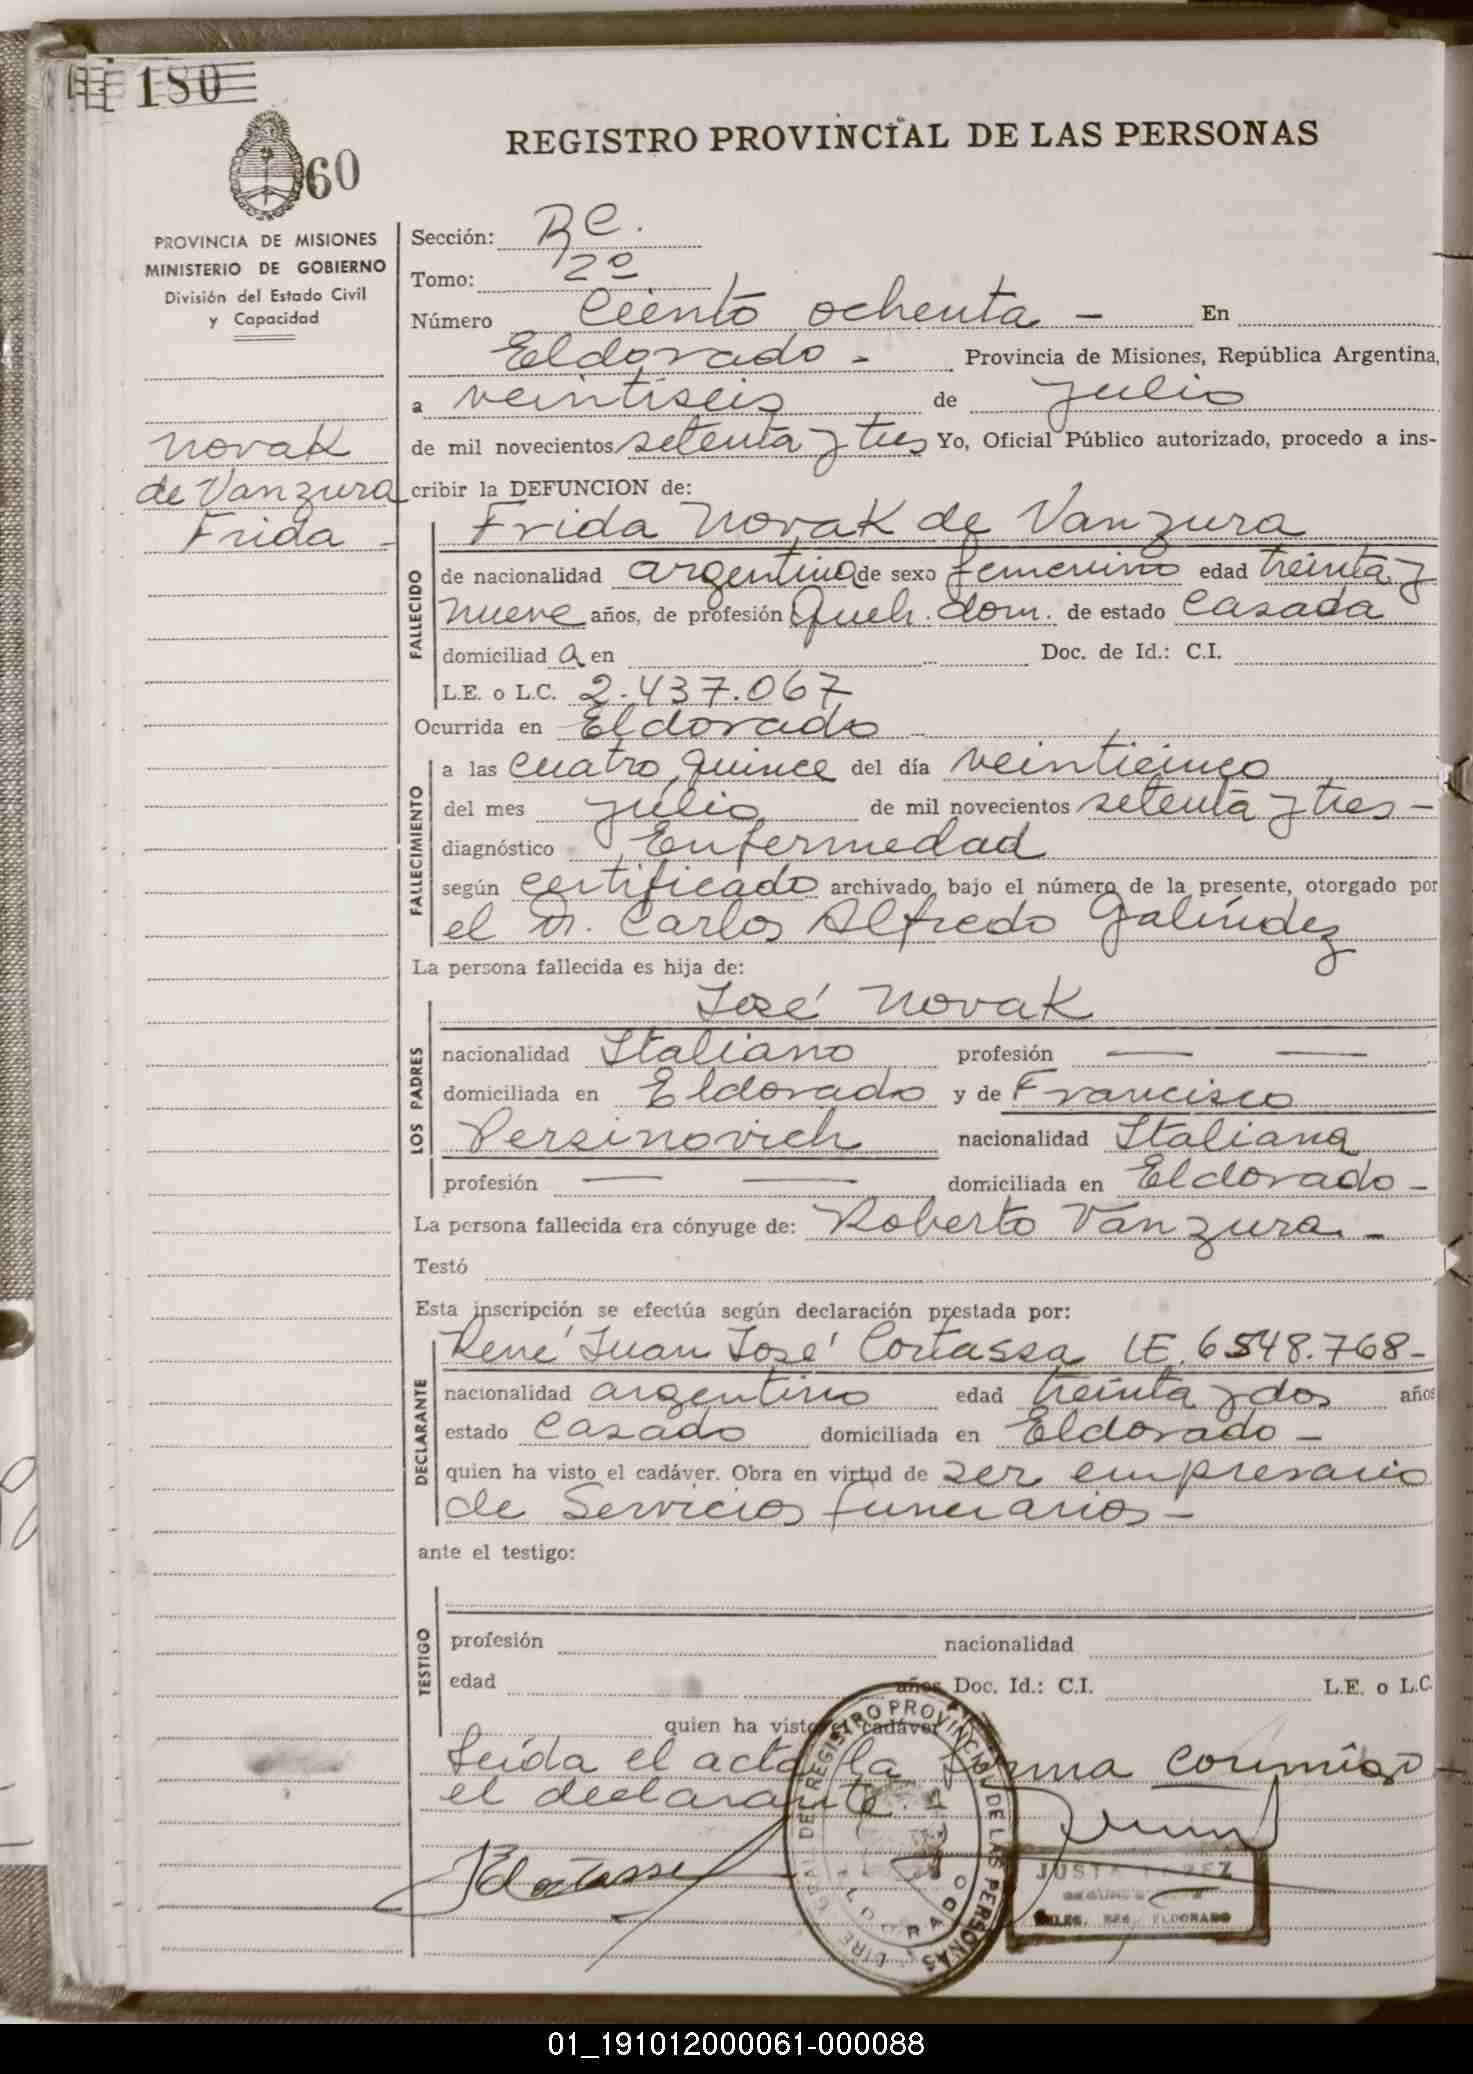 180
60
REGISTRO PROVINCIAL DE LAS PERSONAS
PROVINCIA DE MISIONES
MINISTERIO DE GOBIERNO
División del Estado Civil
y Capacidad
Novak
de Vanzura
Frida -
Sección: RC.
Tomo: 2º
Número Ciento ochenta - En
Eldorado - Provincia de Misiones, República Argentina,
a veintiseis de julio
de mil novecientos setenta y tres Yo, Oficial Público autorizado, procedo a ins-
cribir la DEFUNCION de:
Frida Novak de Vanzura
FALLECIDO
de nacionalidad argentina de sexo femenino edad treinta y
nueve años, de profesión Queh. dom. de estado Casada
domiciliad a en Doc. de Id.: C.I.
L.E. o L.C. 2.437.067
Ocurrida en Eldorado
FALLECIMIENTO
a las cuatro quince del día veinticinco
del mes julio de mil novecientos setenta y tres -
diagnóstico Enfermedad
según certificado archivado bajo el número de la presente, otorgado por
el Dr. Carlos Alfredo Galíndez
La persona fallecida es hija de:
José Novak
LOS PADRES
nacionalidad Italiano profesión — —
domiciliada en Eldorado y de Francisco
Persinovich nacionalidad Italiana
profesión — — domiciliada en Eldorado -
La persona fallecida era cónyuge de: Roberto Vanzura. -
Testó
Esta inscripción se efectúa según declaración prestada por:
René Juan José Cortassa LE. 6548.768-
DECLARANTE
nacionalidad argentino edad treinta y dos años
estado Casado domiciliada en Eldorado -
quien ha visto el cadáver. Obra en virtud de ser empresario
de Servicios funerarios -
ante el testigo:
TESTIGO
profesión nacionalidad
edad años Doc. Id.: C.I. L.E. o L.C.
quien ha visto el cadáver
Leída el acta la firma conmigo -
el declarante.
REGISTRO PROVINCIAL DE LAS PERSONAS
ELDORADO
ELDORADO
01_191012000061-000088